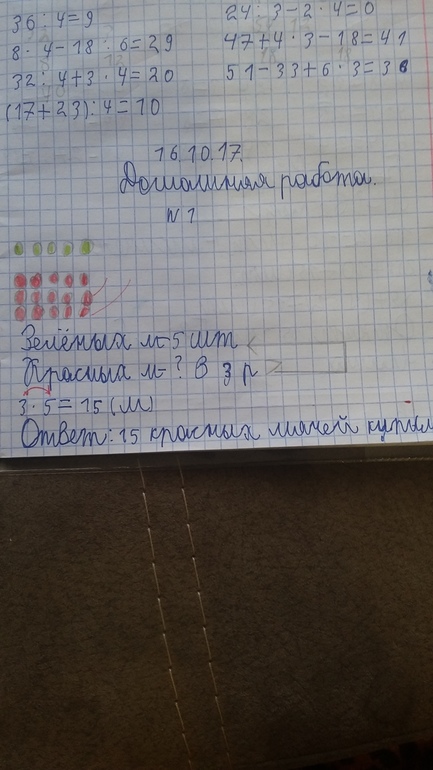 36 : 4 = 9
8 · 4 - 18 : 6 = 29
32 : 4 + 3 · 4 = 20
(17 + 23) : 4 = 10
24 : 3 - 2 · 4 = 0
47 + 4 · 3 - 18 = 41
51 - 33 + 6 · 3 = 36
16.10.17.
Домашняя работа.
№ 1
Зелёных м - 5 шт
Красных м - ? В 3 р
3 · 5 = 15 (м)
Ответ: 15 красных мячей